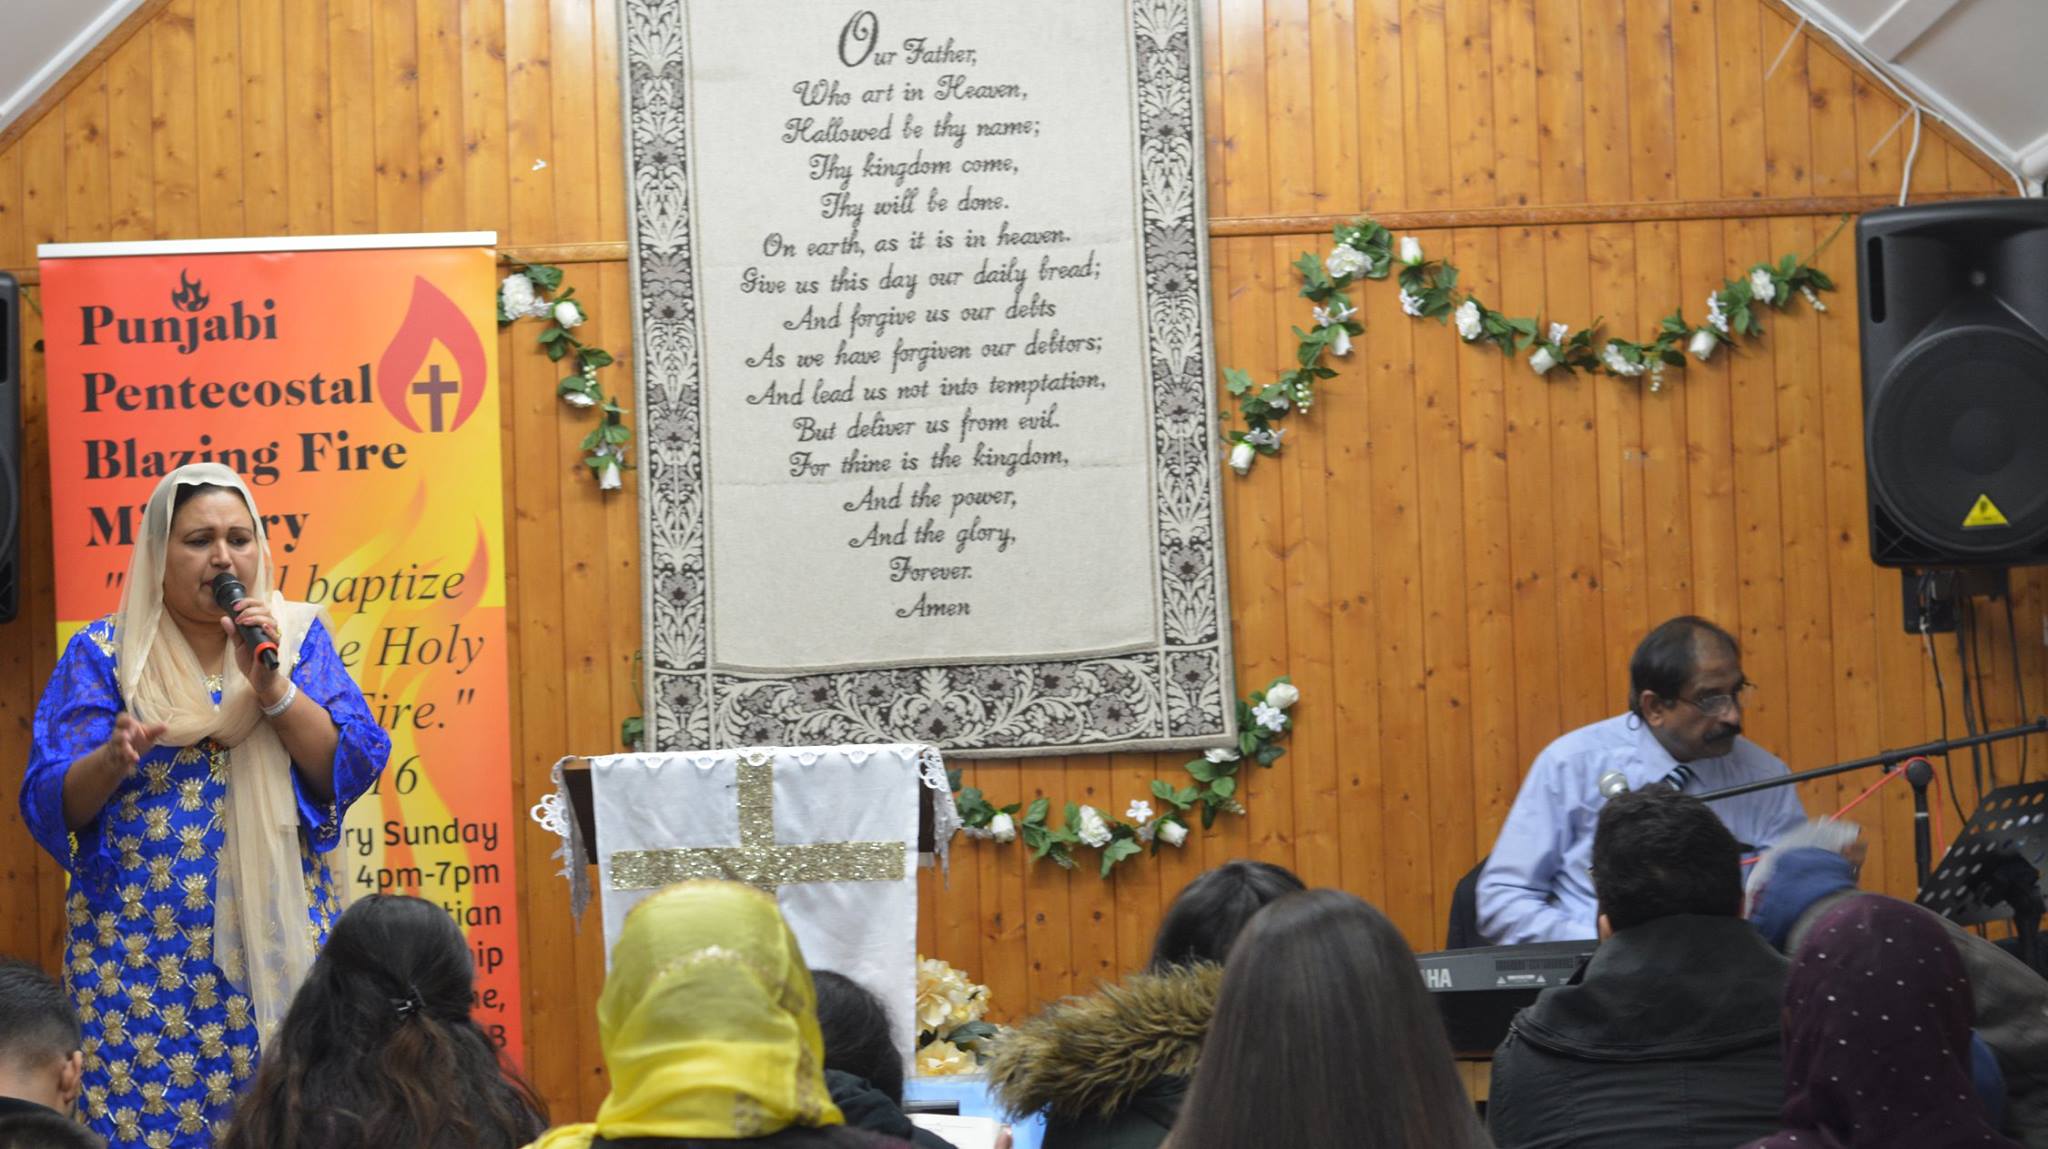 Punjabi
Pentecostal
Blazing Fire
baptize
Holy
16
Sunday
4pm-7pm
Our Father,
Who art in Heaven,
Hallowed be thy name;
Thy kingdom come,
Thy will be done.
On earth, as it is in heaven.
Give us this day our daily bread;
And forgive us our debts
As we have forgiven our debtors;
And lead us not into temptation,
But deliver us from evil.
For thine is the kingdom,
And the power,
And the glory,
Forever.
Amen